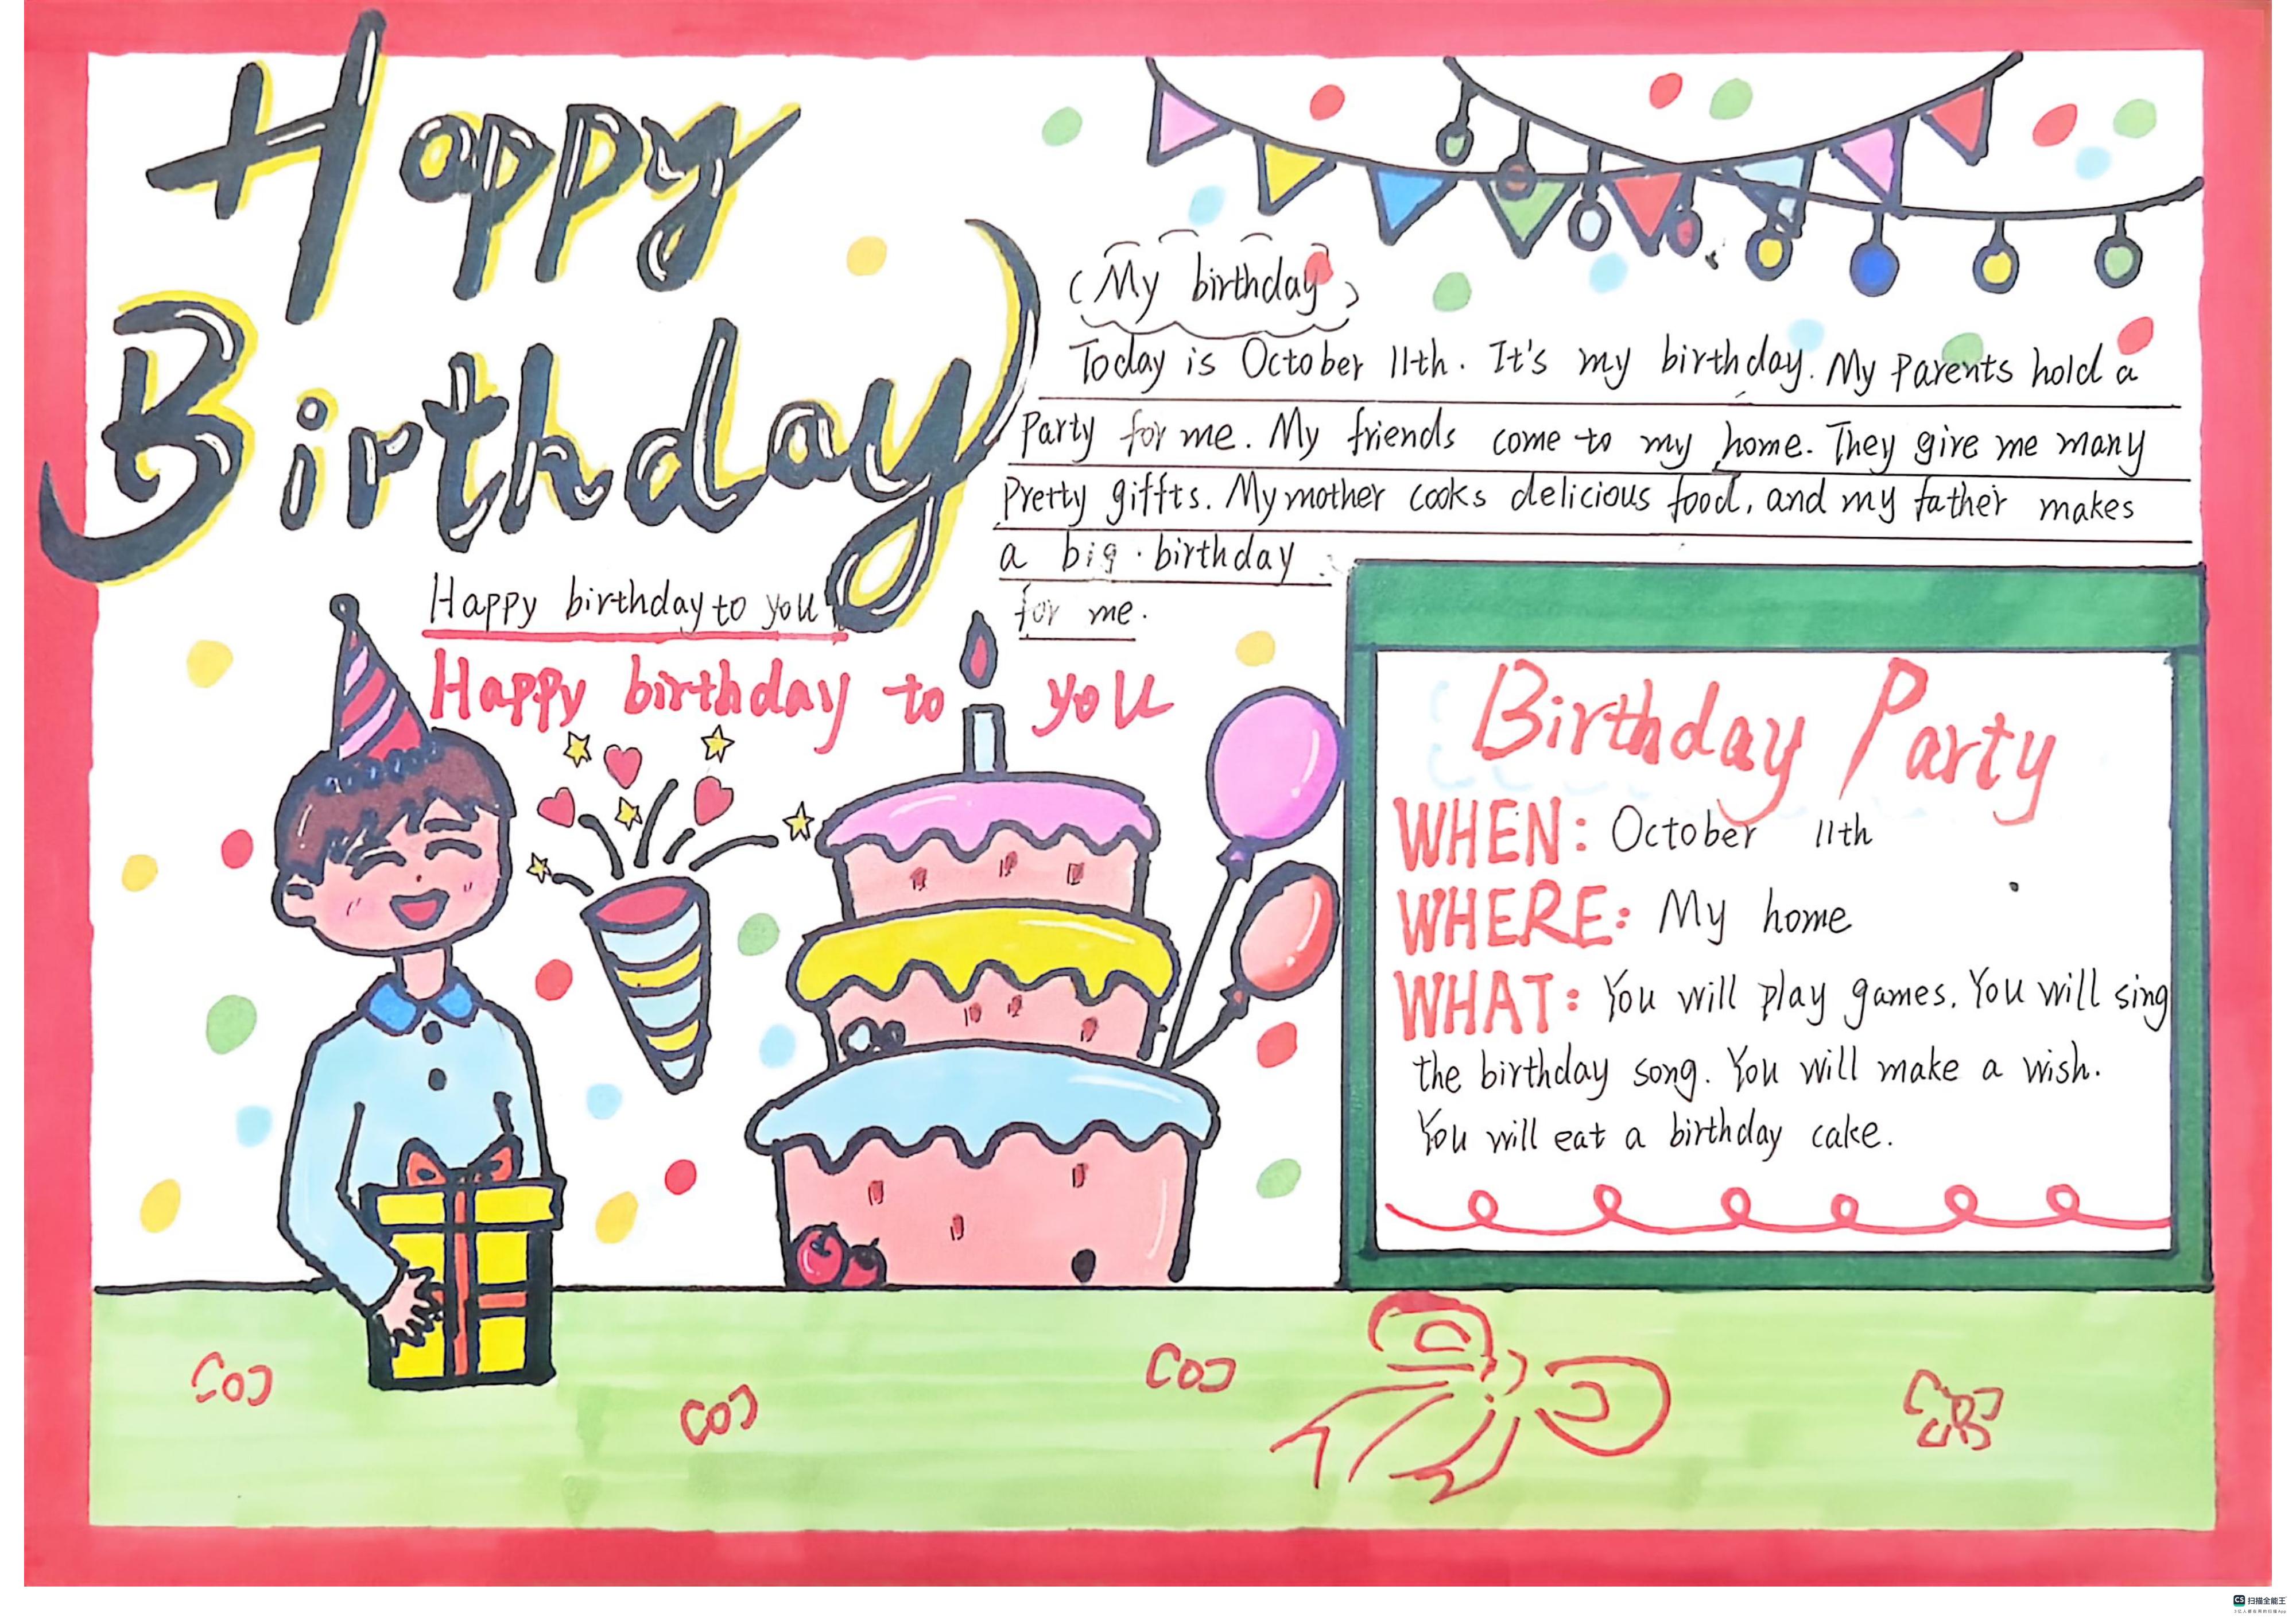 Happy
Birthday
(My birthday)
Today is October 11th. It's my birthday. My Parents hold a
Party for me. My friends come to my home. They give me many
Pretty giffts. My mother cooks delicious food, and my father makes
a big birthday
for me.
Happy birthday to you
Happy birthday to you
Birthday Party
WHEN: October 11th
WHERE: My home
WHAT: You will play games. You will sing
the birthday song. You will make a wish.
You will eat a birthday cake.
CS 扫描全能王